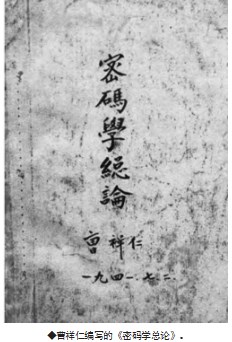 密碼學總論
曹祥仁
一九四一.七.二.
◆曹祥仁编写的《密码学总论》。